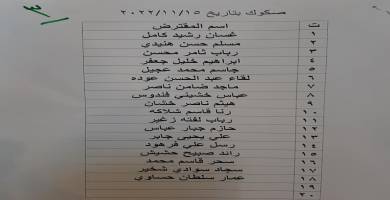 صكوك بتاريخ ٢٠٢٢/١١/١٥
ت اسم المقترض
١ غسان رشيد كامل
٢ مسلم حسن هنيدي
٣ رباب ثامر محسن
٤ ابراهيم خليل جعفر
٥ جاسم محمد عجيل
٦ لقاء عبد الحسن عوده
٧ ماجد ضامن ناصر
٨ عباس خشيني فندوس
٩ هيثم ناصر خشان
١٠ رنا قاسم شلاكه
١١ رباب لفته زغير
١٢ حازم جبار عباس
١٣ علي يحيى جابر
١٤ رسل علي فرهود
١٥ رائد صبيح حشيش
١٦ سحر قاسم محمد
١٧ سجاد سوادي شخير
١٨ عمار سلطان حساوي
١٩
٢٠